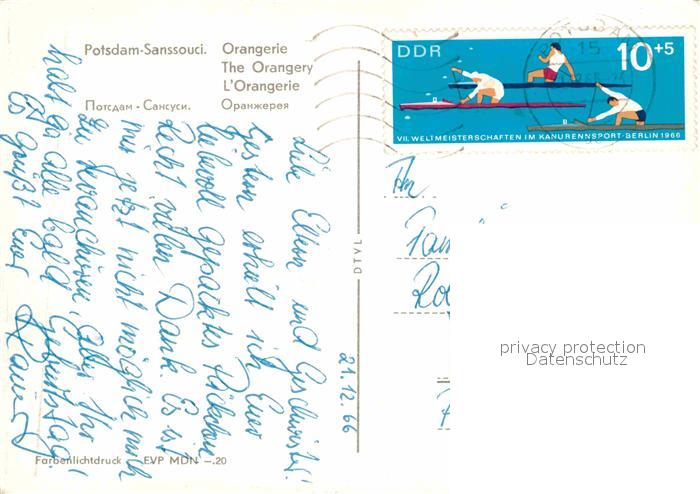 Potsdam-Sanssouci. Orangerie
The Orangery
L'Orangerie
Потсдам - Сансуси. Оранжерея
DDR
10+5
VII. WELTMEISTERSCHAFTEN IM KANURENNSPORT · BERLIN 1966
15
21.12.66
Liebe Eltern und Geschwister!
Gestern erhielt ich Euer
liebevoll gepacktes Päckchen
Recht vielen Dank. Es ist
mir jetzt nicht möglich mich
zu revanchieren, aber Ihr
habt ja alle bald Geburtstag!
Es grüßt Euer
DTVL
An
Fam
privacy protection
Datenschutz
Farbenlichtdruck EVP MDN -.20